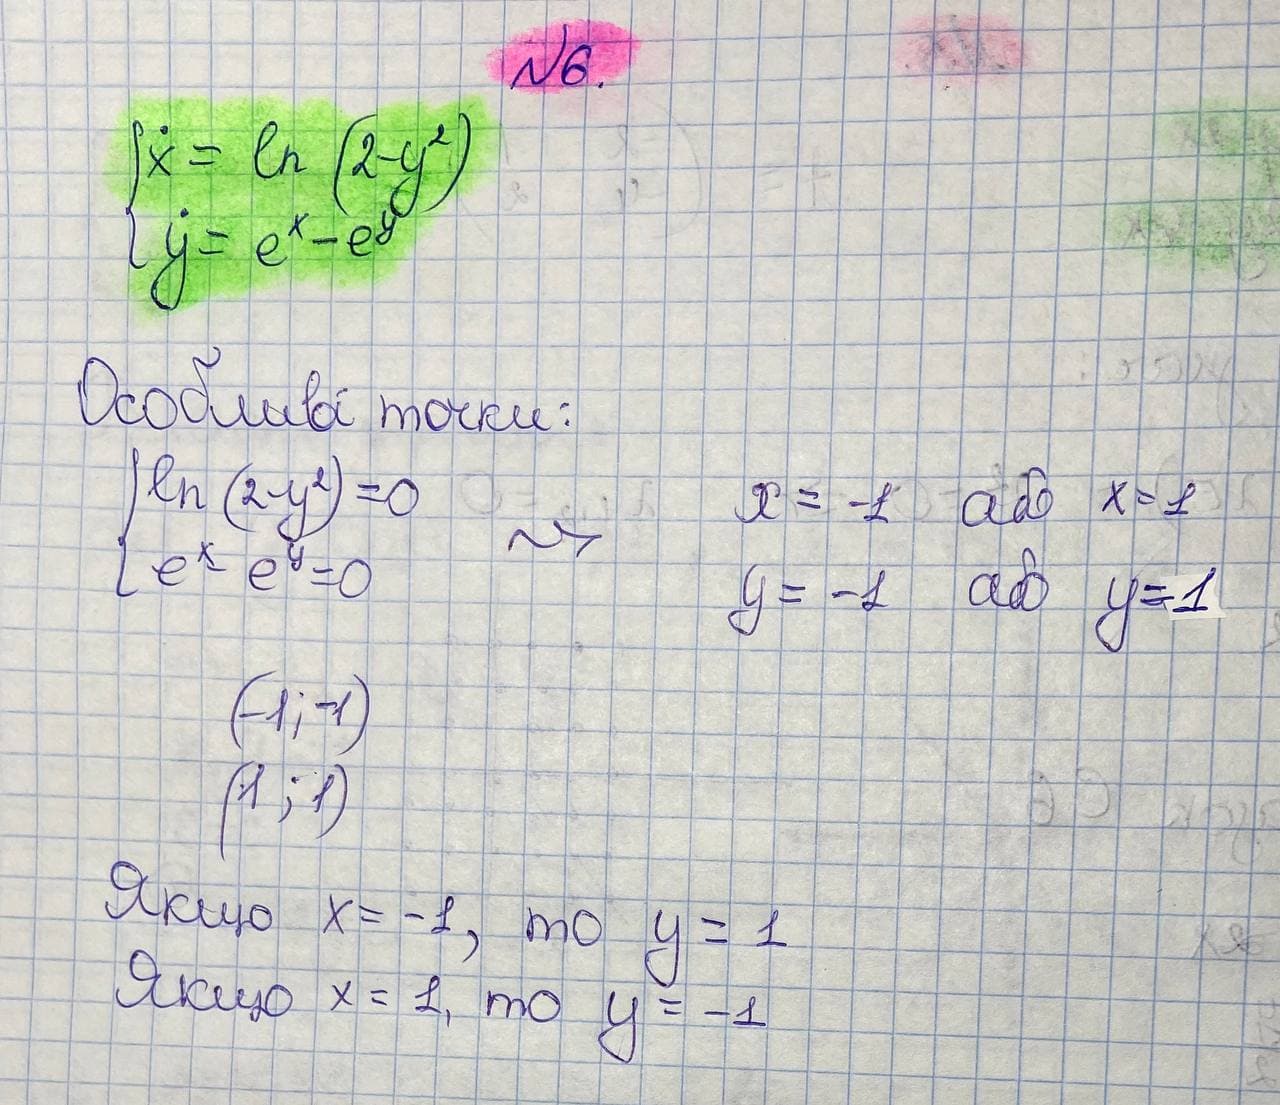 №6.
ẋ = ln (2-y²)
ẏ = eˣ - eʸ
Особливі точки:
ln (2-y²) = 0
eˣ - eʸ = 0
x = -1 або x = 1
y = -1 або y = 1
(-1; -1)
(1; 1)
Якщо x = -1, то y = 1
Якщо x = 1, то y = -1